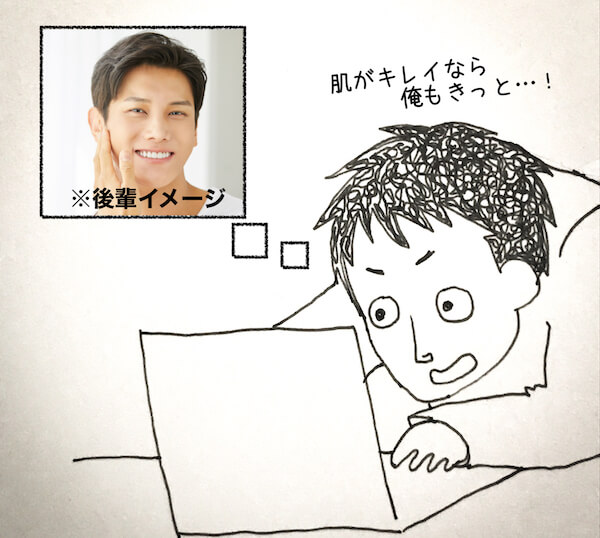 肌がキレイなら
俺もきっと…！
※後輩イメージ